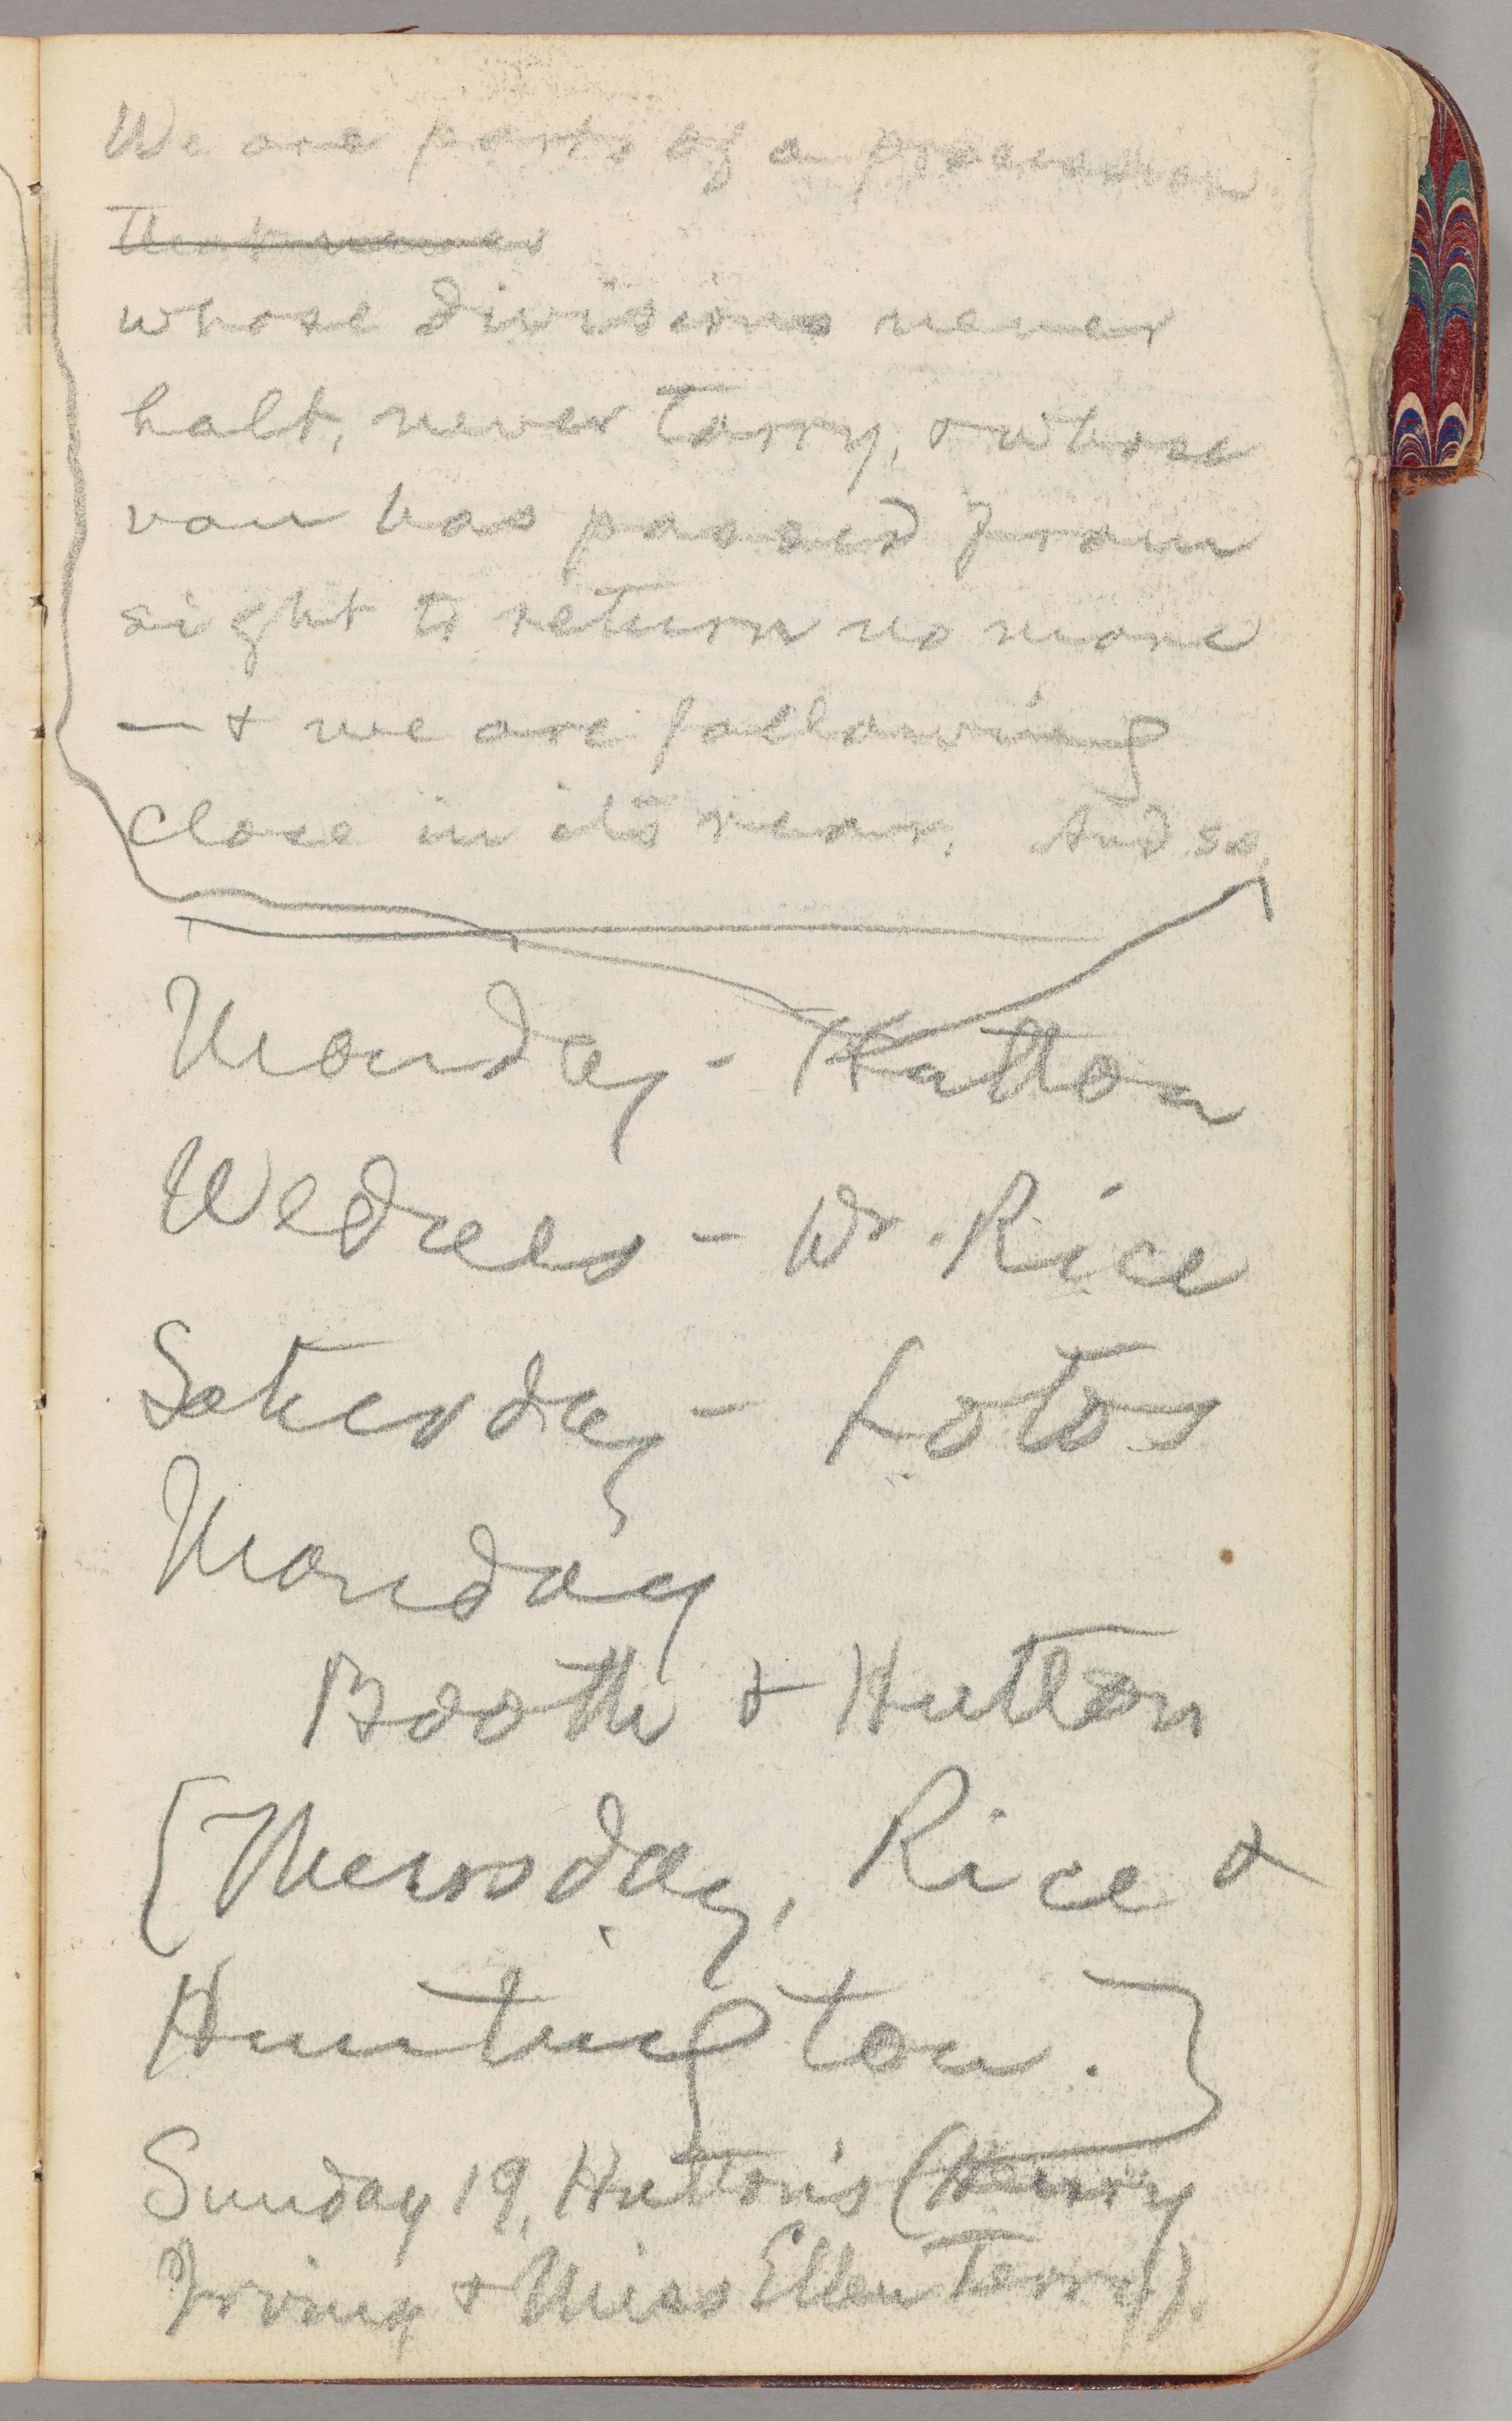 We are parts of a procession
that never
whose divisions never
halt, never tarry, & whose
van has passed from
sight to return no more
— & we are following
close in its rear. And so,
Monday - Hutton
Wednes - Dr. Rice
Saturday - Lotos
Monday
Booth & Hutton
[Thursday, Rice &
Huntington.}
Sunday 19, Hutton's (Henry
Irving & Miss Ellen Terry).